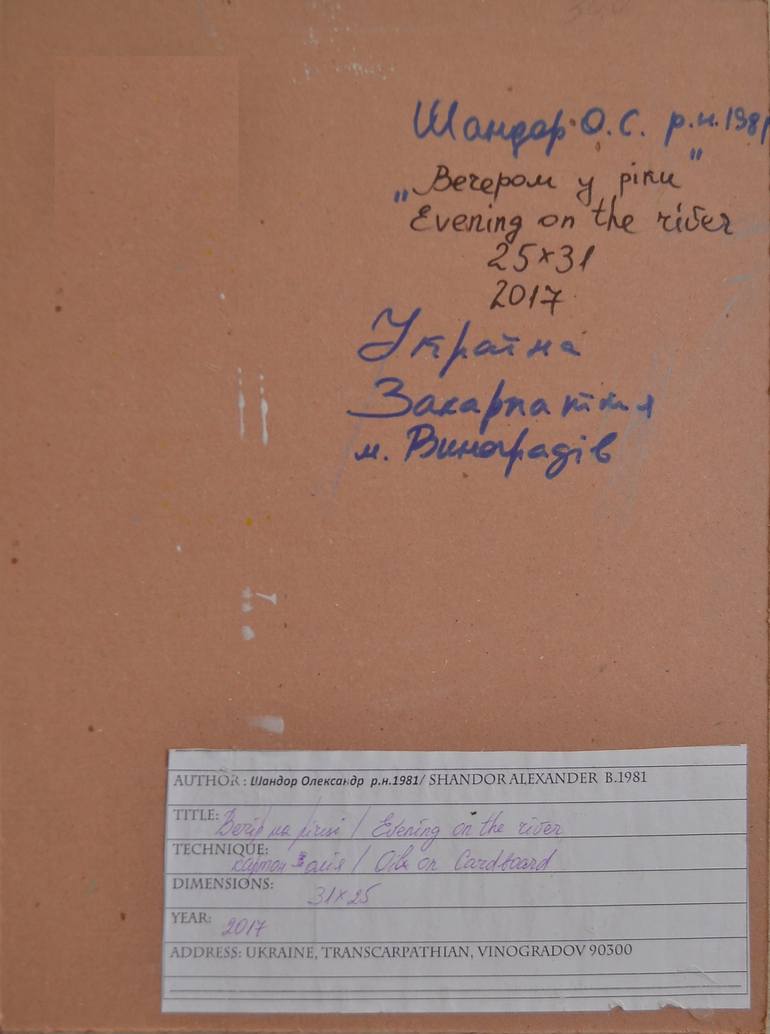 Шандор О.С. р.н. 1981
„Вечером у ріки"
Evening on the river
25×31
2017
Україна
Закарпаття
м. Виноградів
AUTHOR: Шандор Олександр р.н.1981/ SHANDOR ALEXANDER B.1981
TITLE: Вечір на річці / Evening on the river
TECHNIQUE: картон олія / Oil on Cardboard
DIMENSIONS: 31×25
YEAR: 2017
ADDRESS: UKRAINE, TRANSCARPATHIAN, VINOGRADOV 90300